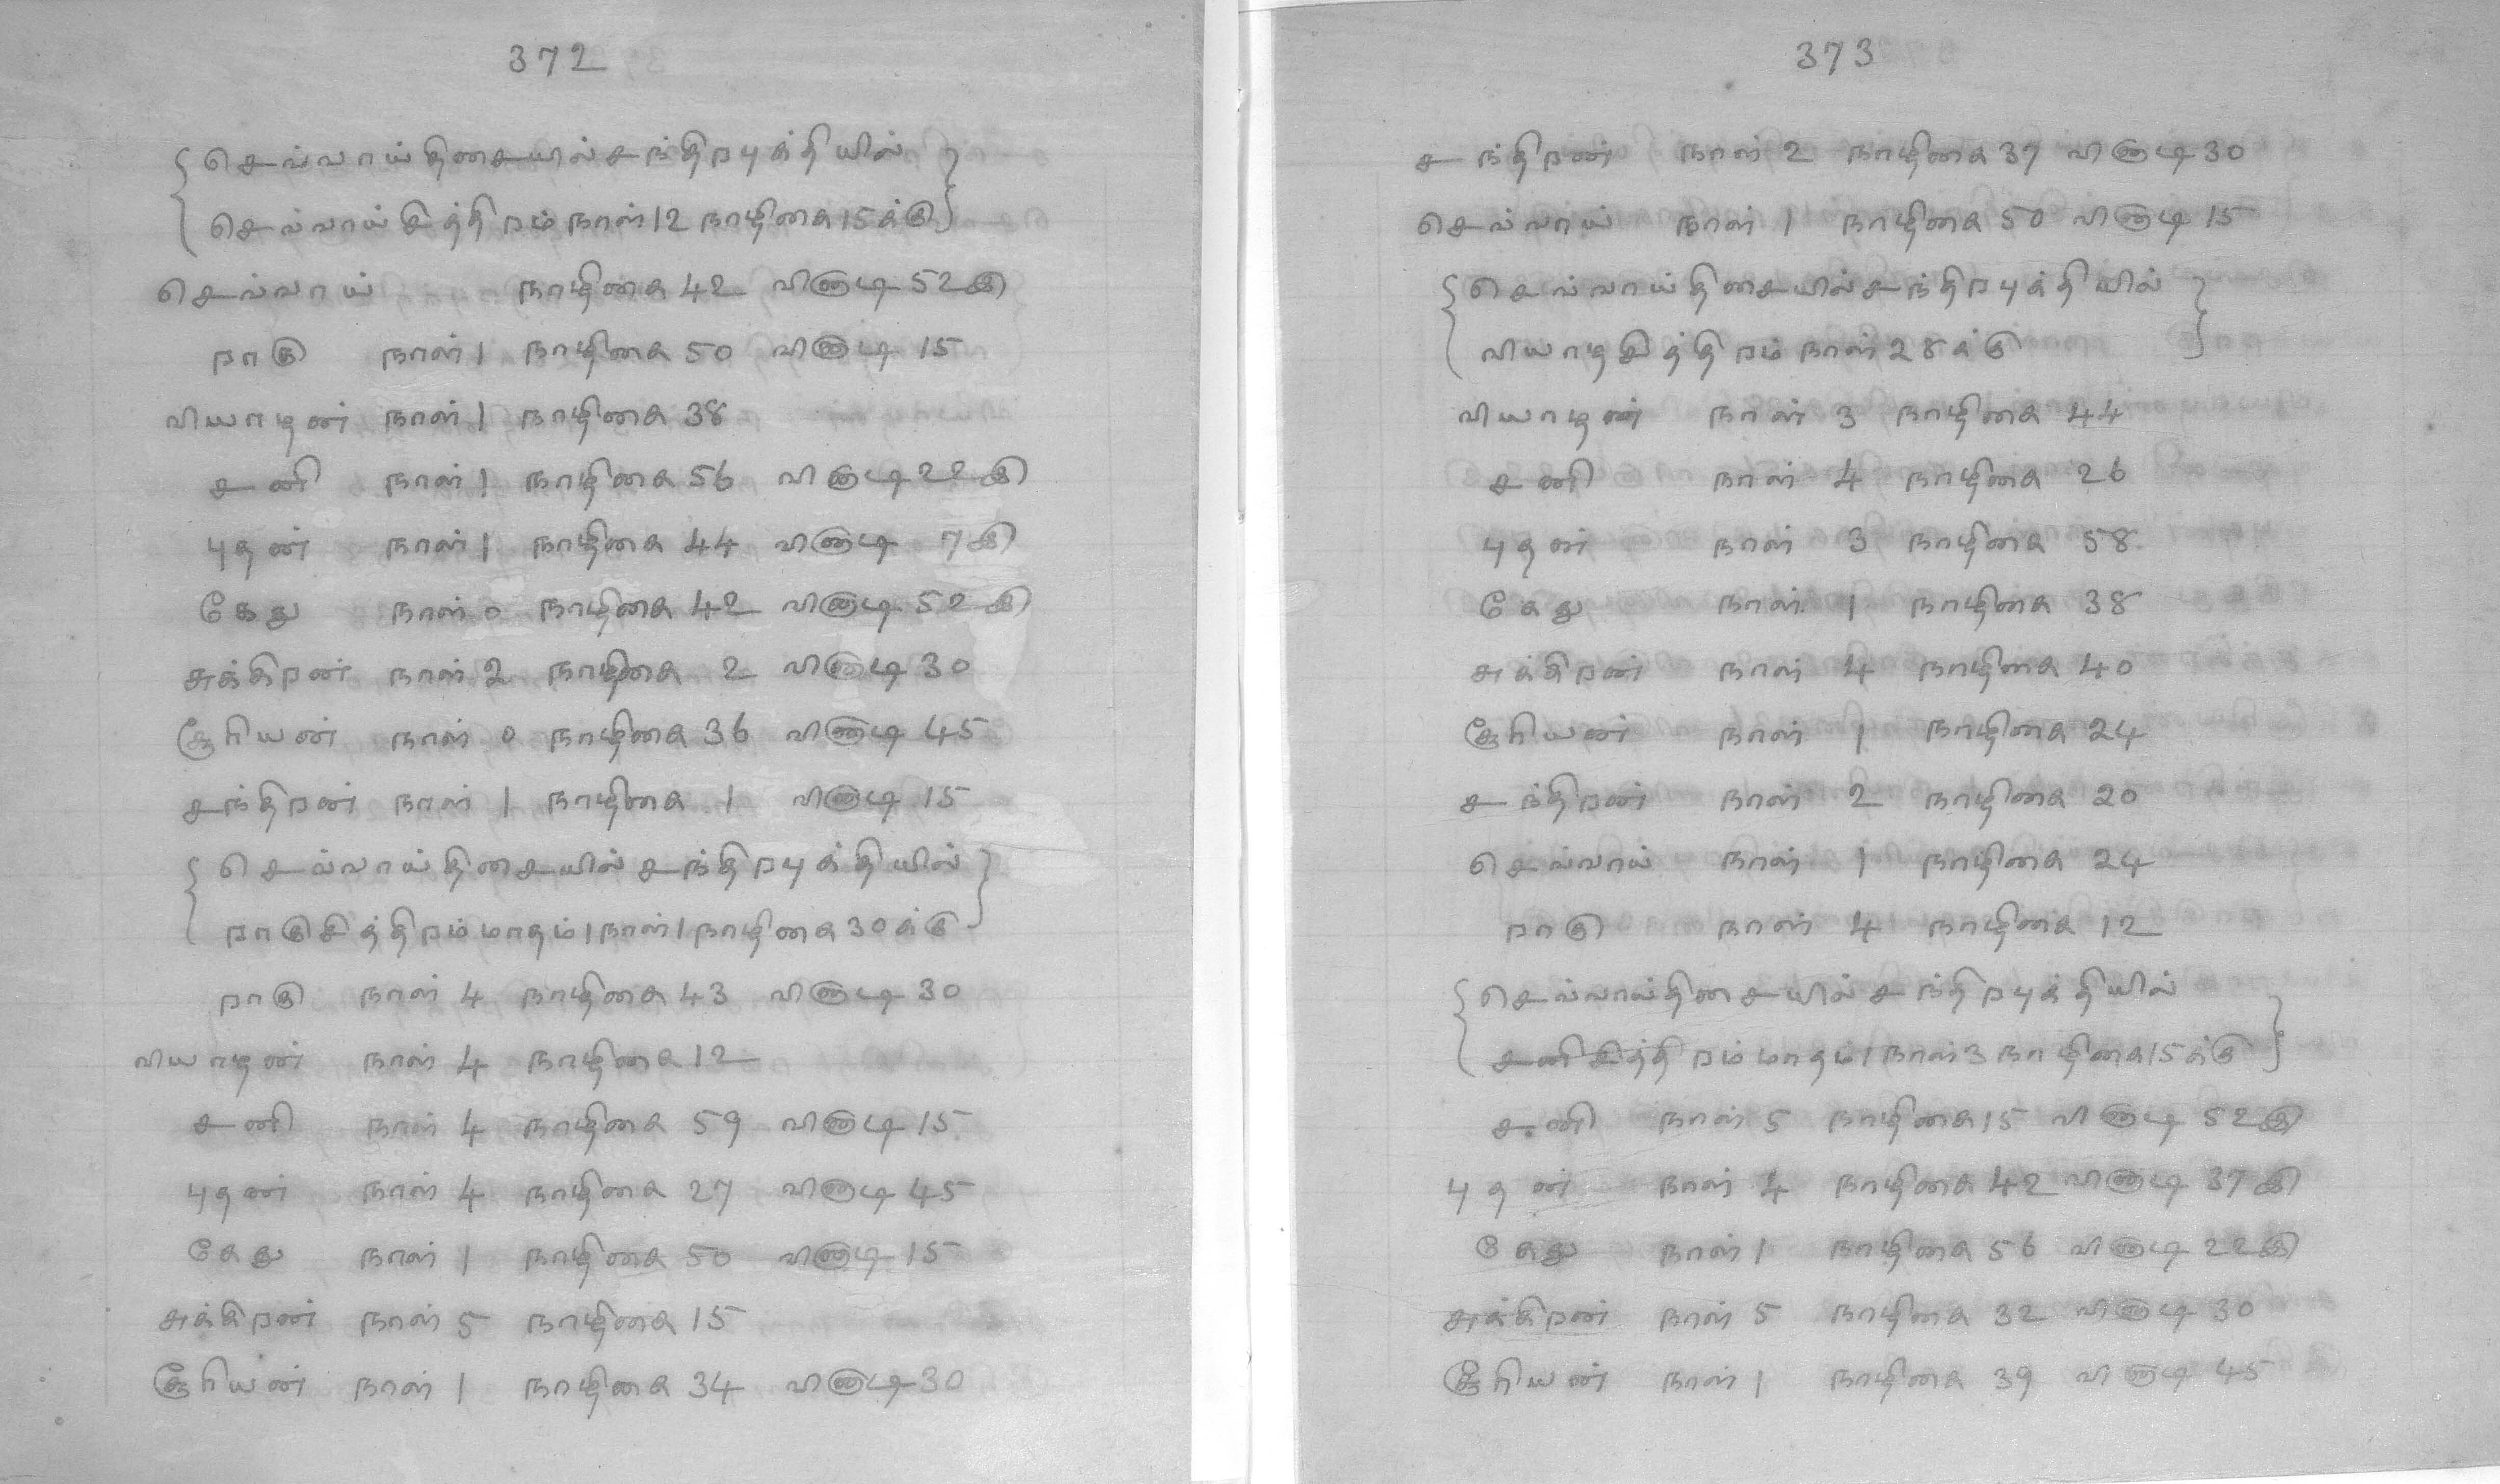 372
செவ்வாய்திசையில்சந்திரபுக்தியில்
செவ்வாய்சித்திரம்நாள்12நாழிகை15க்கு
செவ்வாய் நாழிகை 42 வினாடி 52இ
ராகு நாள் 1 நாழிகை 50 வினாடி 15
வியாழன் நாள் 1 நாழிகை 38
சனி நாள் 1 நாழிகை 56 வினாடி 22இ
புதன் நாள் 1 நாழிகை 44 வினாடி 7இ
கேது நாள் 0 நாழிகை 42 வினாடி 52இ
சுக்கிரன் நாள் 2 நாழிகை 2 வினாடி 30
சூரியன் நாள் 0 நாழிகை 36 வினாடி 45
சந்திரன் நாள் 1 நாழிகை 1 வினாடி 15
செவ்வாய்திசையில்சந்திரபுக்தியில்
ராகுசித்திரம்மாதம்1நாள்1நாழிகை30க்கு
ராகு நாள் 4 நாழிகை 43 வினாடி 30
வியாழன் நாள் 4 நாழிகை 12
சனி நாள் 4 நாழிகை 59 வினாடி 15
புதன் நாள் 4 நாழிகை 27 வினாடி 45
கேது நாள் 1 நாழிகை 50 வினாடி 15
சுக்கிரன் நாள் 5 நாழிகை 15
சூரியன் நாள் 1 நாழிகை 34 வினாடி 30
373
சந்திரன் நாள் 2 நாழிகை 37 வினாடி 30
செவ்வாய் நாள் 1 நாழிகை 50 வினாடி 15
செவ்வாய்திசையில்சந்திரபுக்தியில்
வியாழசித்திரம்நாள்28க்கு
வியாழன் நாள் 3 நாழிகை 44
சனி நாள் 4 நாழிகை 26
புதன் நாள் 3 நாழிகை 58
கேது நாள் 1 நாழிகை 38
சுக்கிரன் நாள் 4 நாழிகை 40
சூரியன் நாள் 1 நாழிகை 24
சந்திரன் நாள் 2 நாழிகை 20
செவ்வாய் நாள் 1 நாழிகை 24
ராகு நாள் 4 நாழிகை 12
செவ்வாய்திசையில்சந்திரபுக்தியில்
சனிசித்திரம்மாதம்1நாள்3நாழிகை15க்கு
சனி நாள் 5 நாழிகை 15 வினாடி 52இ
புதன் நாள் 4 நாழிகை 42 வினாடி 37இ
கேது நாள் 1 நாழிகை 56 வினாடி 22இ
சுக்கிரன் நாள் 5 நாழிகை 32 வினாடி 30
சூரியன் நாள் 1 நாழிகை 39 வினாடி 45